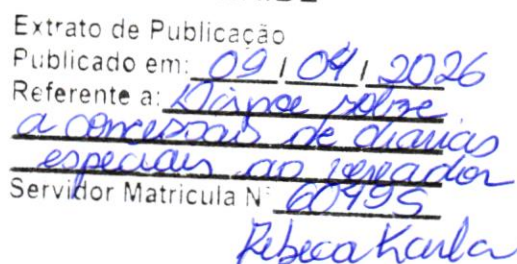 Extrato de Publicação
Publicado em: 09 / 04 / 2026
Referente a: Dispoe sobre
a concessais de diarias
especiais ao vereador
Servidor Matricula N: 60495
Rebeca Karla